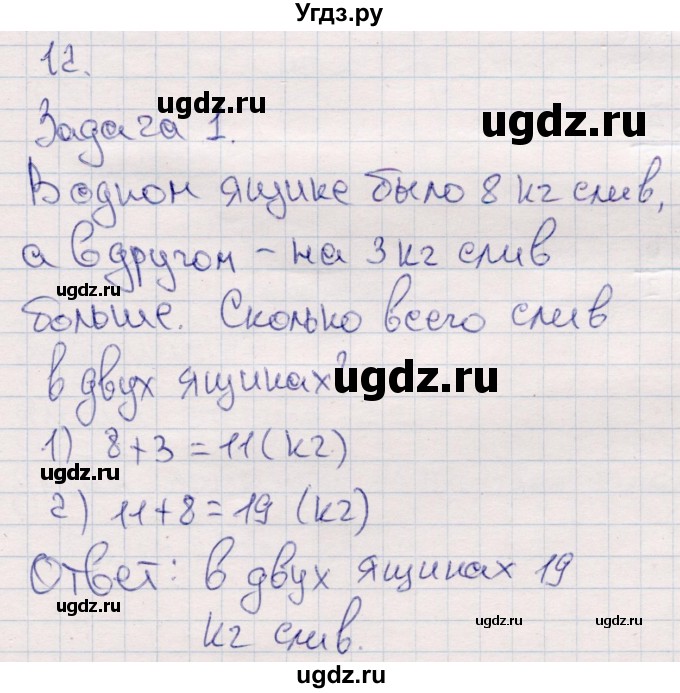 Угдз.ру
12.
ugdz.ru
ugdz.ru
Задача 1.
В одном ящике было 8 кг слив,
а в другом - на 3 кг слив
ugdz.ru
больше. Сколько всего слив
в двух ящиках?
ugdz.ru
1) 8+3=11(кг)
ugdz.ru
2) 11+8=19 (кг)
Ответ: в двух ящиках 19
ugdz.ru
кг слив.
ugdz.ru
ugdz.ru
ugdz.ru